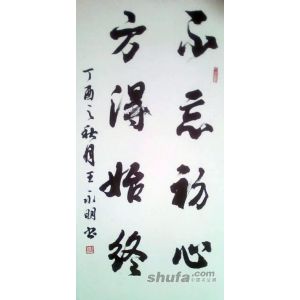 不忘初心
方得始终
丁酉之秋月王永明书
shufa.com